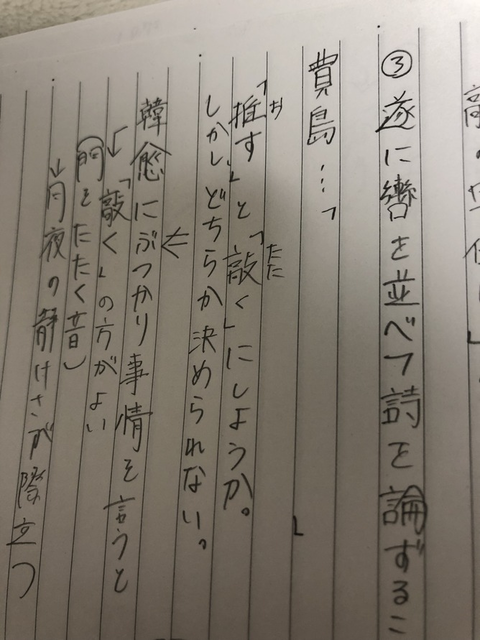 ③遂に轡を並べて詩を論ずるこ
賈島…「
「推す」と「敲く」にしようか。
お
たた
しかしどちらか決められない。」
韓愈にぶつかり事情を言うと
↓「敲く」の方がよい
(門をたたく音)
↓月夜の静けさが際立つ